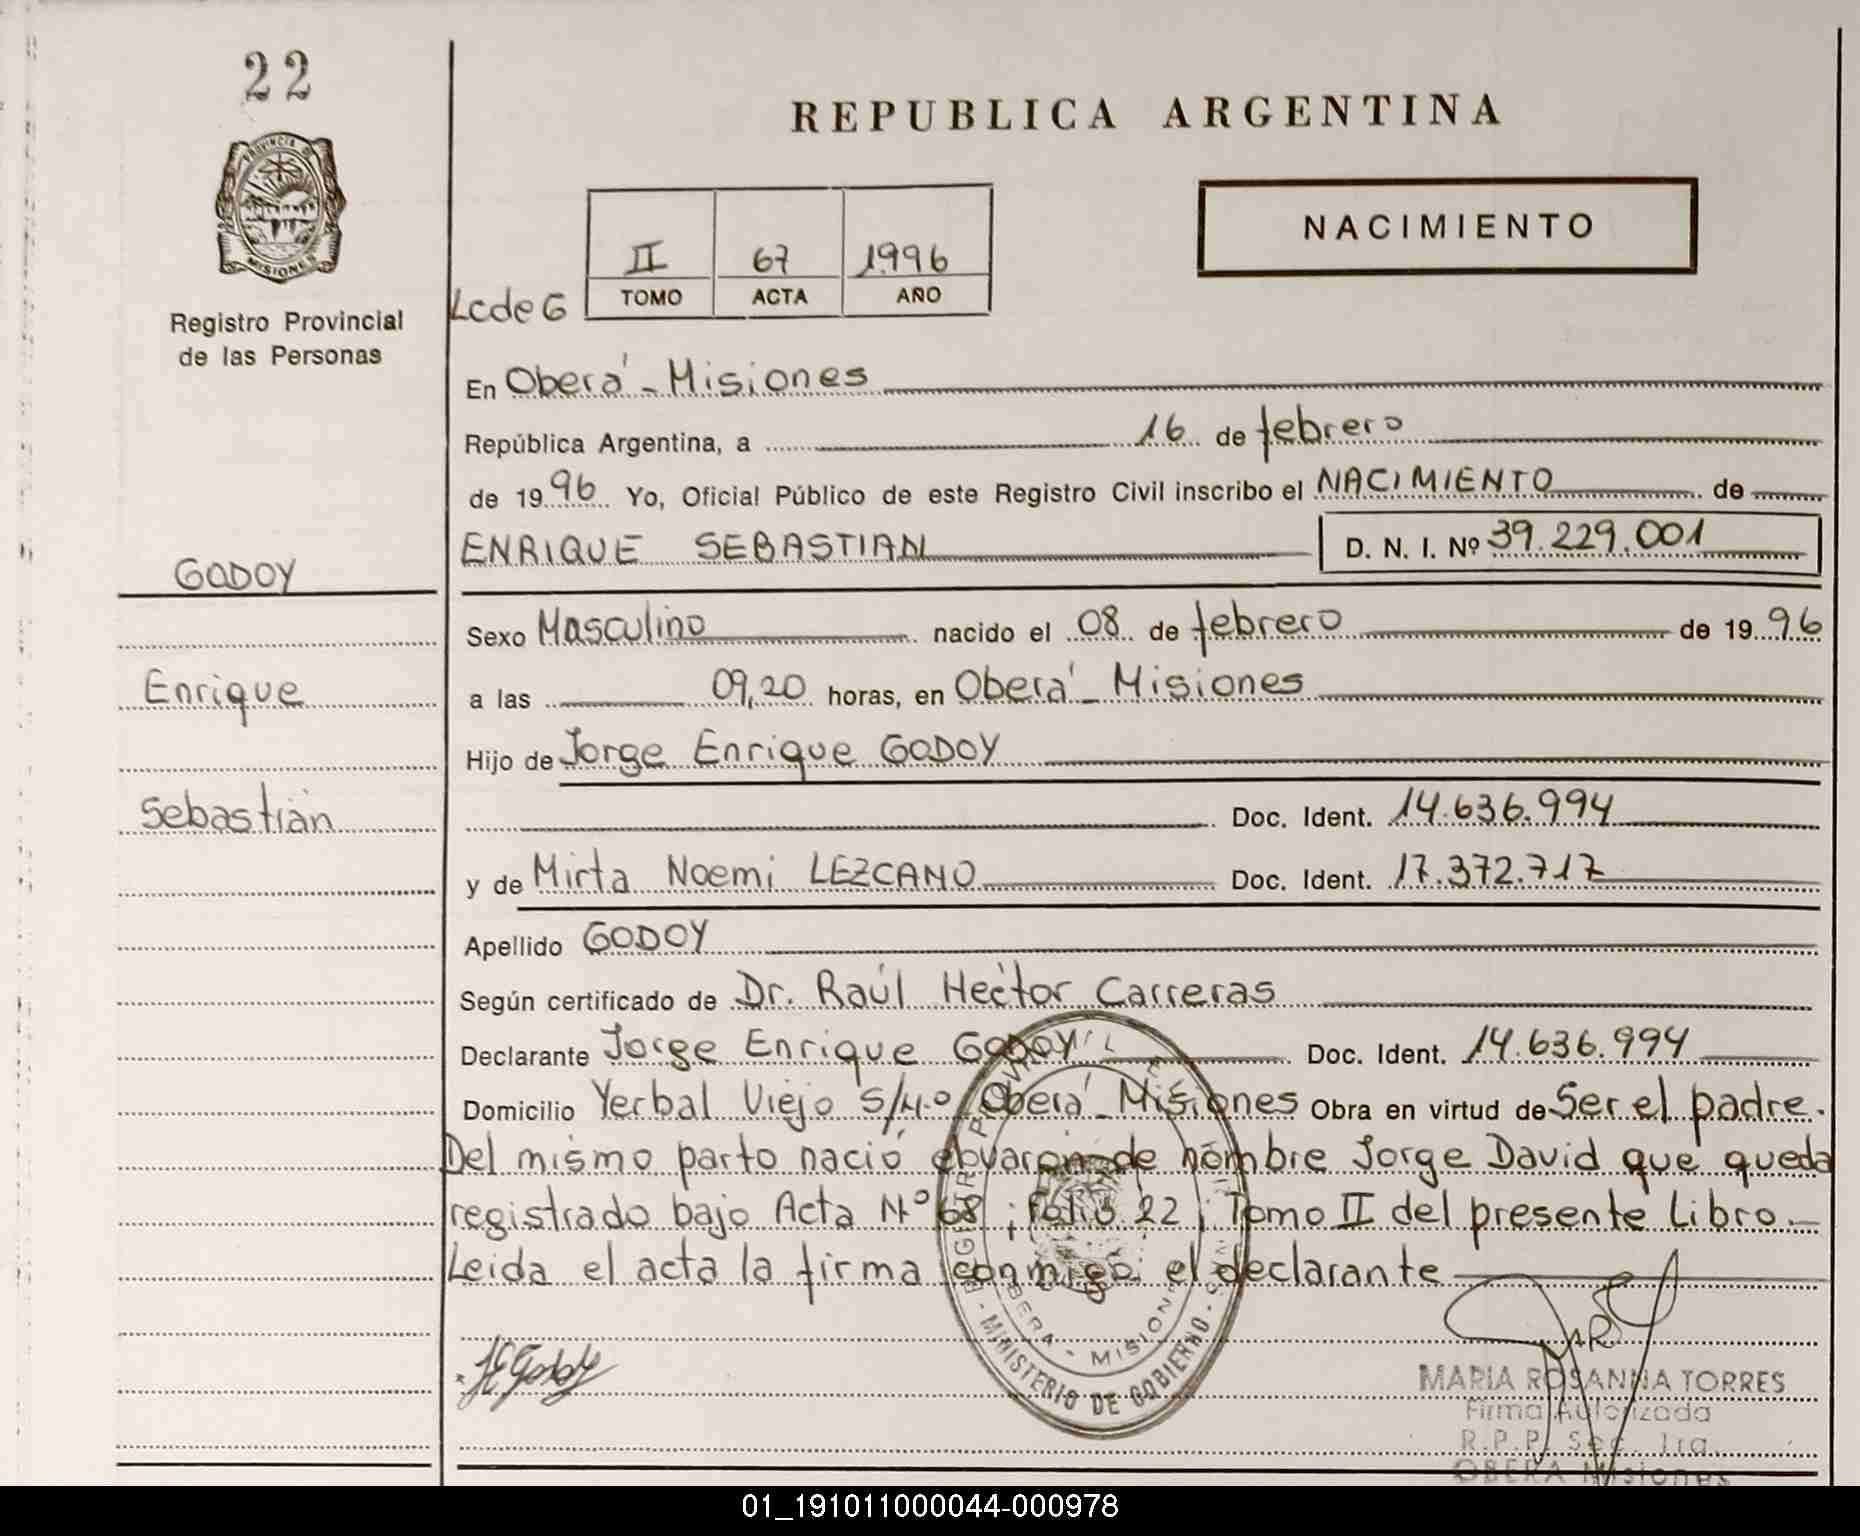 22
PROVINCIA DE
MISIONES
Registro Provincial
de las Personas
REPUBLICA ARGENTINA
NACIMIENTO
II 67 1996
TOMO ACTA AÑO
LcdeG
En Oberá - Misiones
República Argentina, a 16 de febrero
de 1996 Yo, Oficial Público de este Registro Civil inscribo el NACIMIENTO de
GODOY
ENRIQUE SEBASTIAN D. N. I. Nº 39.229.001
Sexo Masculino nacido el 08 de febrero de 1996
Enrique
a las 09,20 horas, en Oberá - Misiones
Hijo de Jorge Enrique GODOY
Sebastián
Doc. Ident. 14.636.994
y de Mirta Noemi LEZCANO Doc. Ident. 17.372.717
Apellido GODOY
Según certificado de Dr. Raúl Héctor Carreras
Declarante Jorge Enrique GODOY Doc. Ident. 14.636.994
Domicilio Yerbal Viejo S/N.º Oberá - Misiones Obra en virtud de Ser el padre.
Del mismo parto nació el varón de nombre Jorge David que queda
registrado bajo Acta Nº 68 ; Folio 22 ; Tomo II del presente Libro.-
Leida el acta la firma conmigo el declarante
MINISTERIO DE GOBIERNO
OBERA - MISIONES
JEGodoy
MARIA ROSANNA TORRES
Firma Autorizada
R.P.P. Sec. 1ra.
OBERA Misiones
01_191011000044-000978